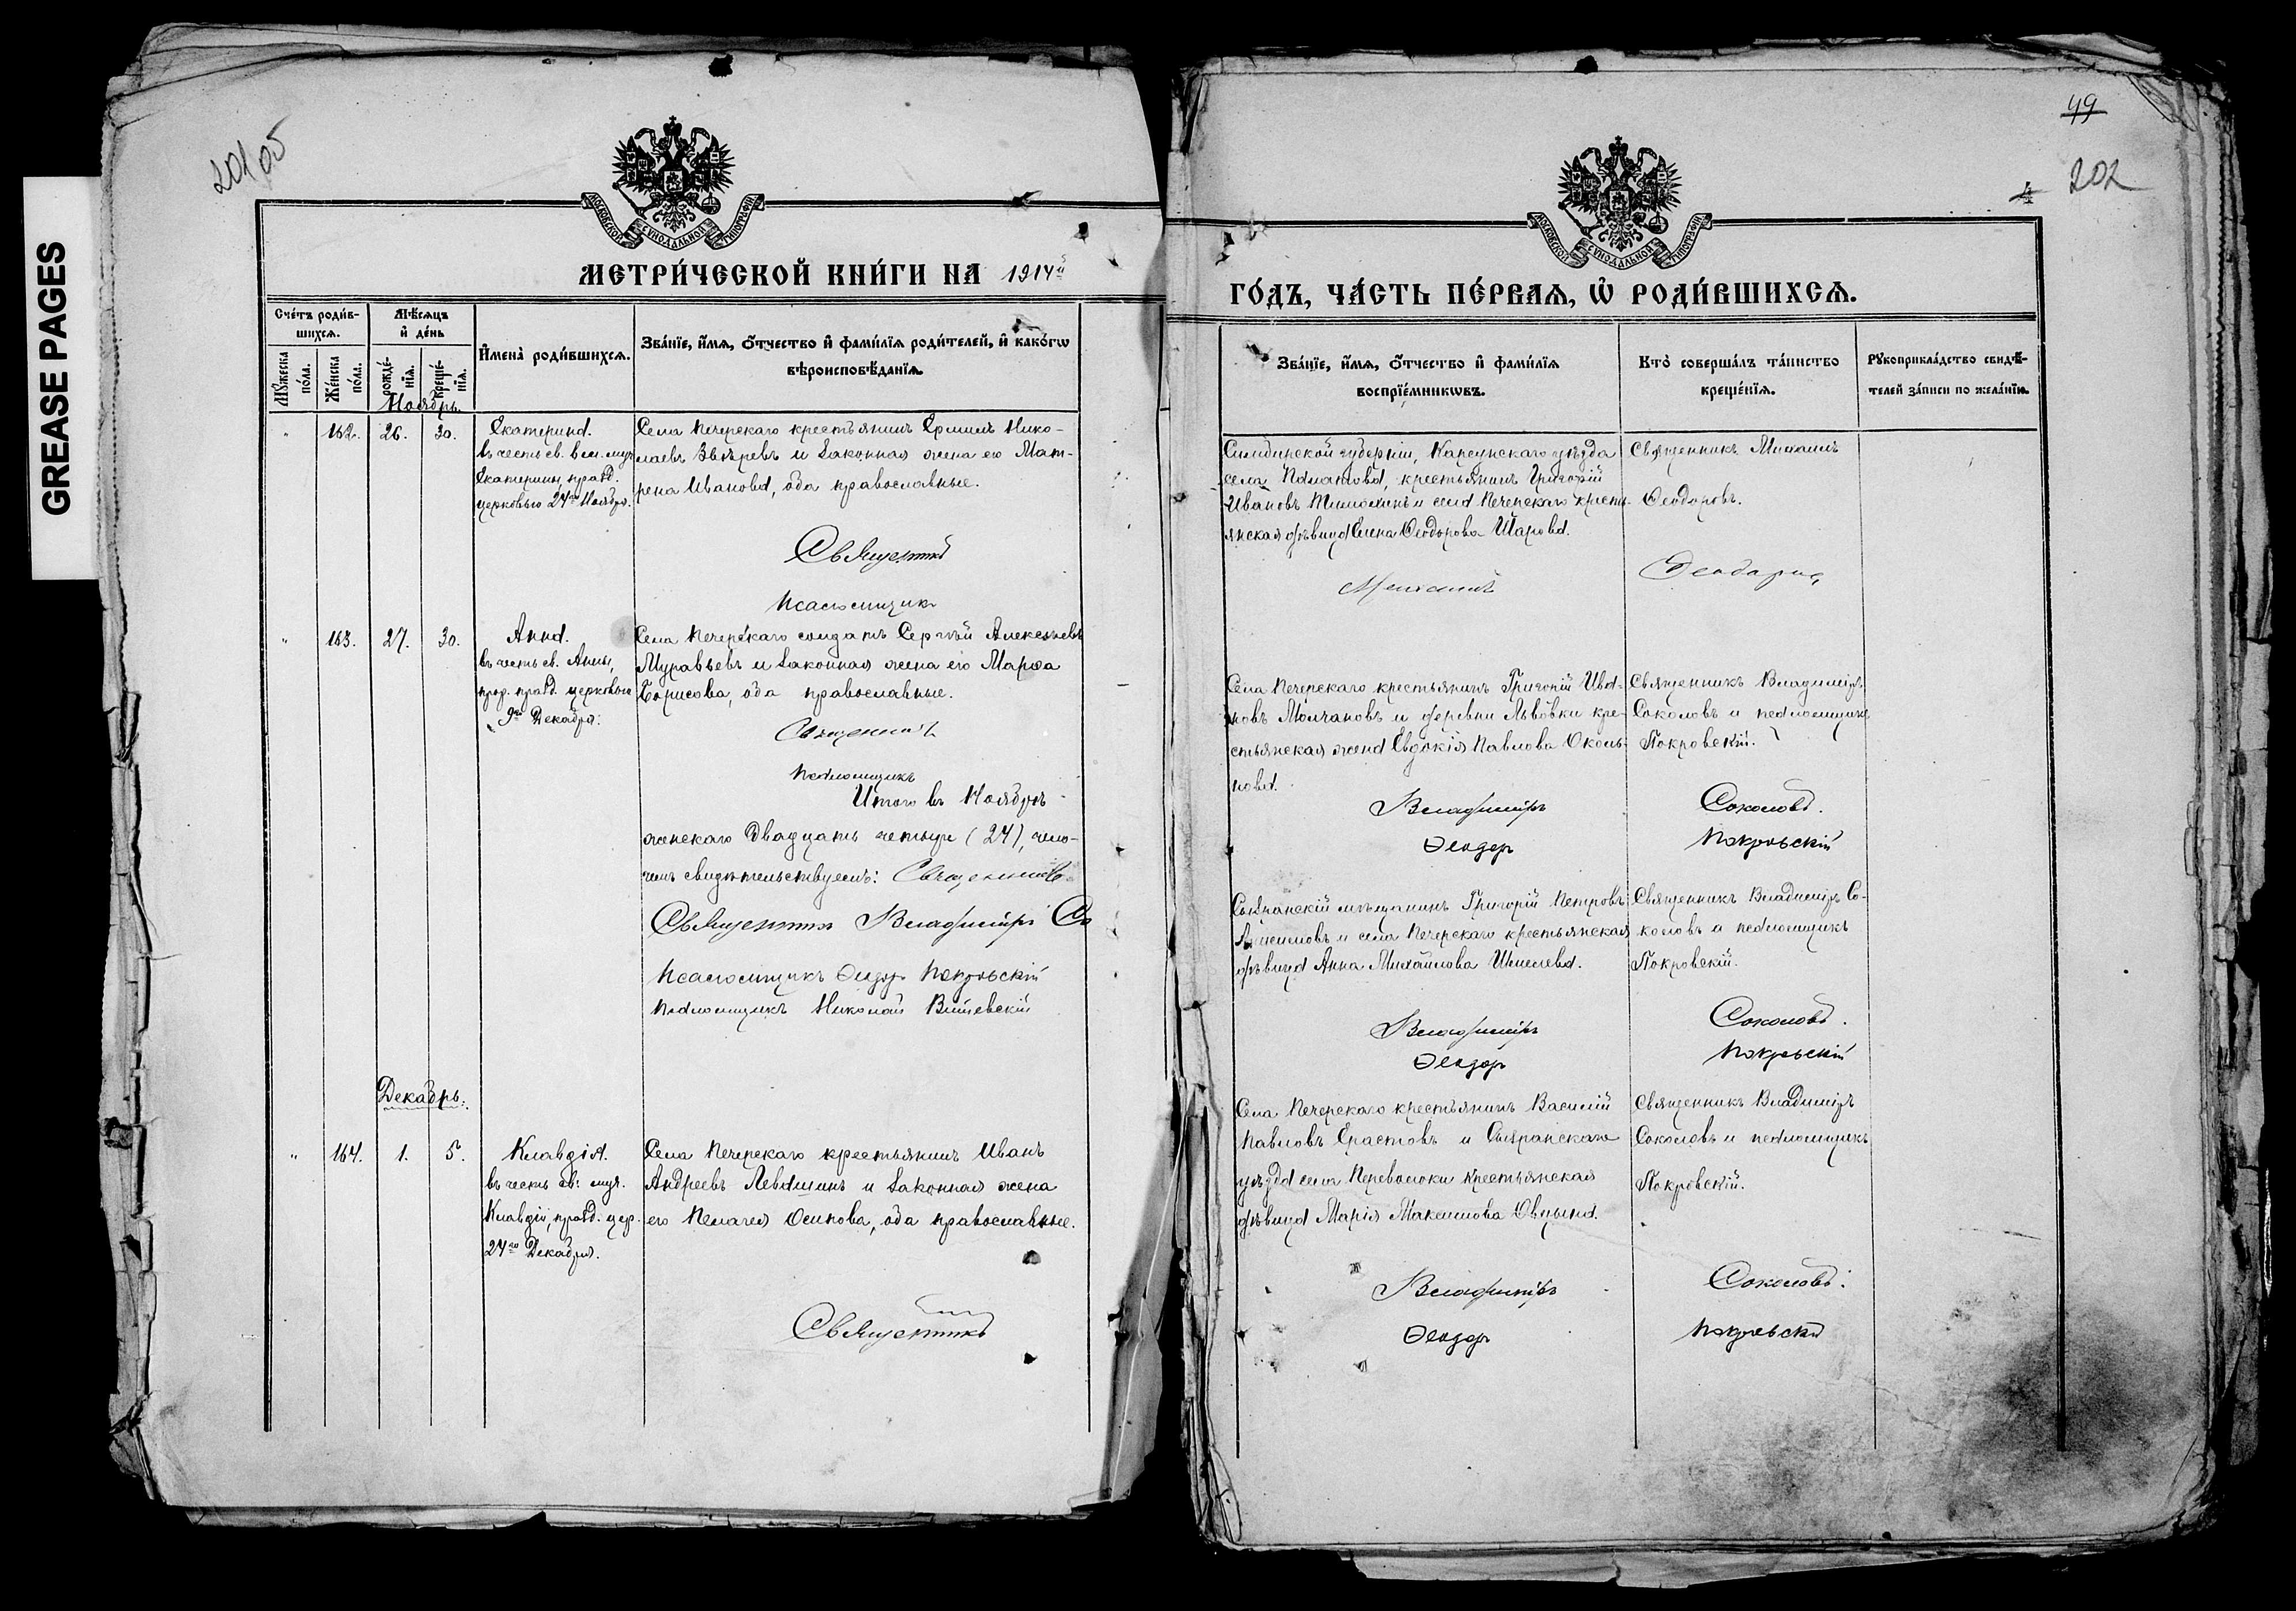 GREASE PAGES
201 об
МОСКОВСКОЙ СѴНОДАЛЬНОЙ ТИПОГРАФІИ
МЕТРИ́ЧЕСКОЙ КНИ́ГИ НА 1914й
Сче́тъ роди́в-
шихсѧ.
Мꙋ́жеска по́ла.
Же́нска по́ла.
Мѣ́сѧцъ
и҆ де́нь
рожде́-
нїѧ.
креще́-
нїѧ.
И҆мена̀ роди́вшихсѧ.
Зва́нїе, и҆́мѧ, ѻ҆́тчество и҆ фами́лїѧ роди́телей, и҆ како́гѡ
вѣроисповѣ́данїѧ.
Ноябрь.
" 162. 26. 30.
Екатерина.
въ честь св. вел. муч.
Екатерины, празд.
церковью 24го Ноября.
Села Печерскаго крестьянинъ Ермилъ Нико-
лаевъ Звѣревъ и законная жена его Мат-
рена Иванова, оба православные.
Священникъ
Псаломщик
" 163. 27. 30.
Анна.
въ честь св. Анны,
прор. празд. церковью
9го Декабря.
Села Печерскаго солдатъ Сергѣй Алексѣевъ
Муравьевъ и законная жена его Марѳа
Борисова, оба православные.
Священникъ
Псаломщикъ
Итого въ Ноябрѣ
женскаго двадцать четыре (24), чемо-
свидѣтельствуемъ: Священникъ
Священникъ Владиміръ Со
Псаломщикъ Ѳеодор Покровскій
Псаломщикъ Николай
Декабрь.
" 164. 1. 5.
Клавдія.
въ честь св. муч.
Клавдіи, празд. цер.
24го Декабря.
Села Печерскаго крестьянинъ Иванъ
Андреевъ Левашинъ и законная жена
его Пелагея Осипова, оба православные.
Священникъ
49
202
МОСКОВСКОЙ СѴНОДАЛЬНОЙ ТИПОГРАФІИ
ГО́ДЪ, ЧА́СТЬ ПЕ́РВАѦ, Ѡ҆ РОДИ́ВШИХСѦ.
Зва́нїе, и҆́мѧ, ѻ҆́тчество и҆ фами́лїѧ
воспрїе́мникѡвъ.
Кто̀ соверша́лъ та́инство
креще́нїѧ.
Рꙋкоприкла́дство свидѣ́-
телей за́писи по жела́нїю.
Симбирской губерніи, Карсунскаго уѣзда
села, крестьянинъ Григорій
Ивановъ и села Печерскаго кресть-
янская дѣвица Елена Ѳеодорова Шарова.
Священникъ Михаилъ
Ѳеодоровъ.
Михаилъ
Ѳеодоровъ
Села Печерскаго крестьянинъ Григорій Ива-
новъ Молчановъ и деревни Львовки кре-
стьянская жена Евдокія Павлова Околь-
нова.
Священникъ Владиміръ
Соколовъ и псаломщикъ
Покровскій.
Владиміръ
Соколовъ.
Ѳеодор
Покровскій
Сызранскій мѣщанинъ Григорій Петровъ
Анисимовъ и села Печерскаго крестьянская
дѣвица Анна Михайлова Шмелева.
Священникъ Владиміръ Со-
коловъ и псаломщикъ
Покровскій.
Владиміръ
Соколовъ.
Ѳеодор
Покровскій
Села Печерскаго крестьянинъ Василій
Павловъ Ерастовъ и Сызранскаго
уѣзда села Переволоки крестьянская
дѣвица Марія Максимова Овцына.
Священникъ Владиміръ
Соколовъ и псаломщикъ
Покровскій.
Владиміръ
Соколовъ.
Ѳеодор
Покровскій